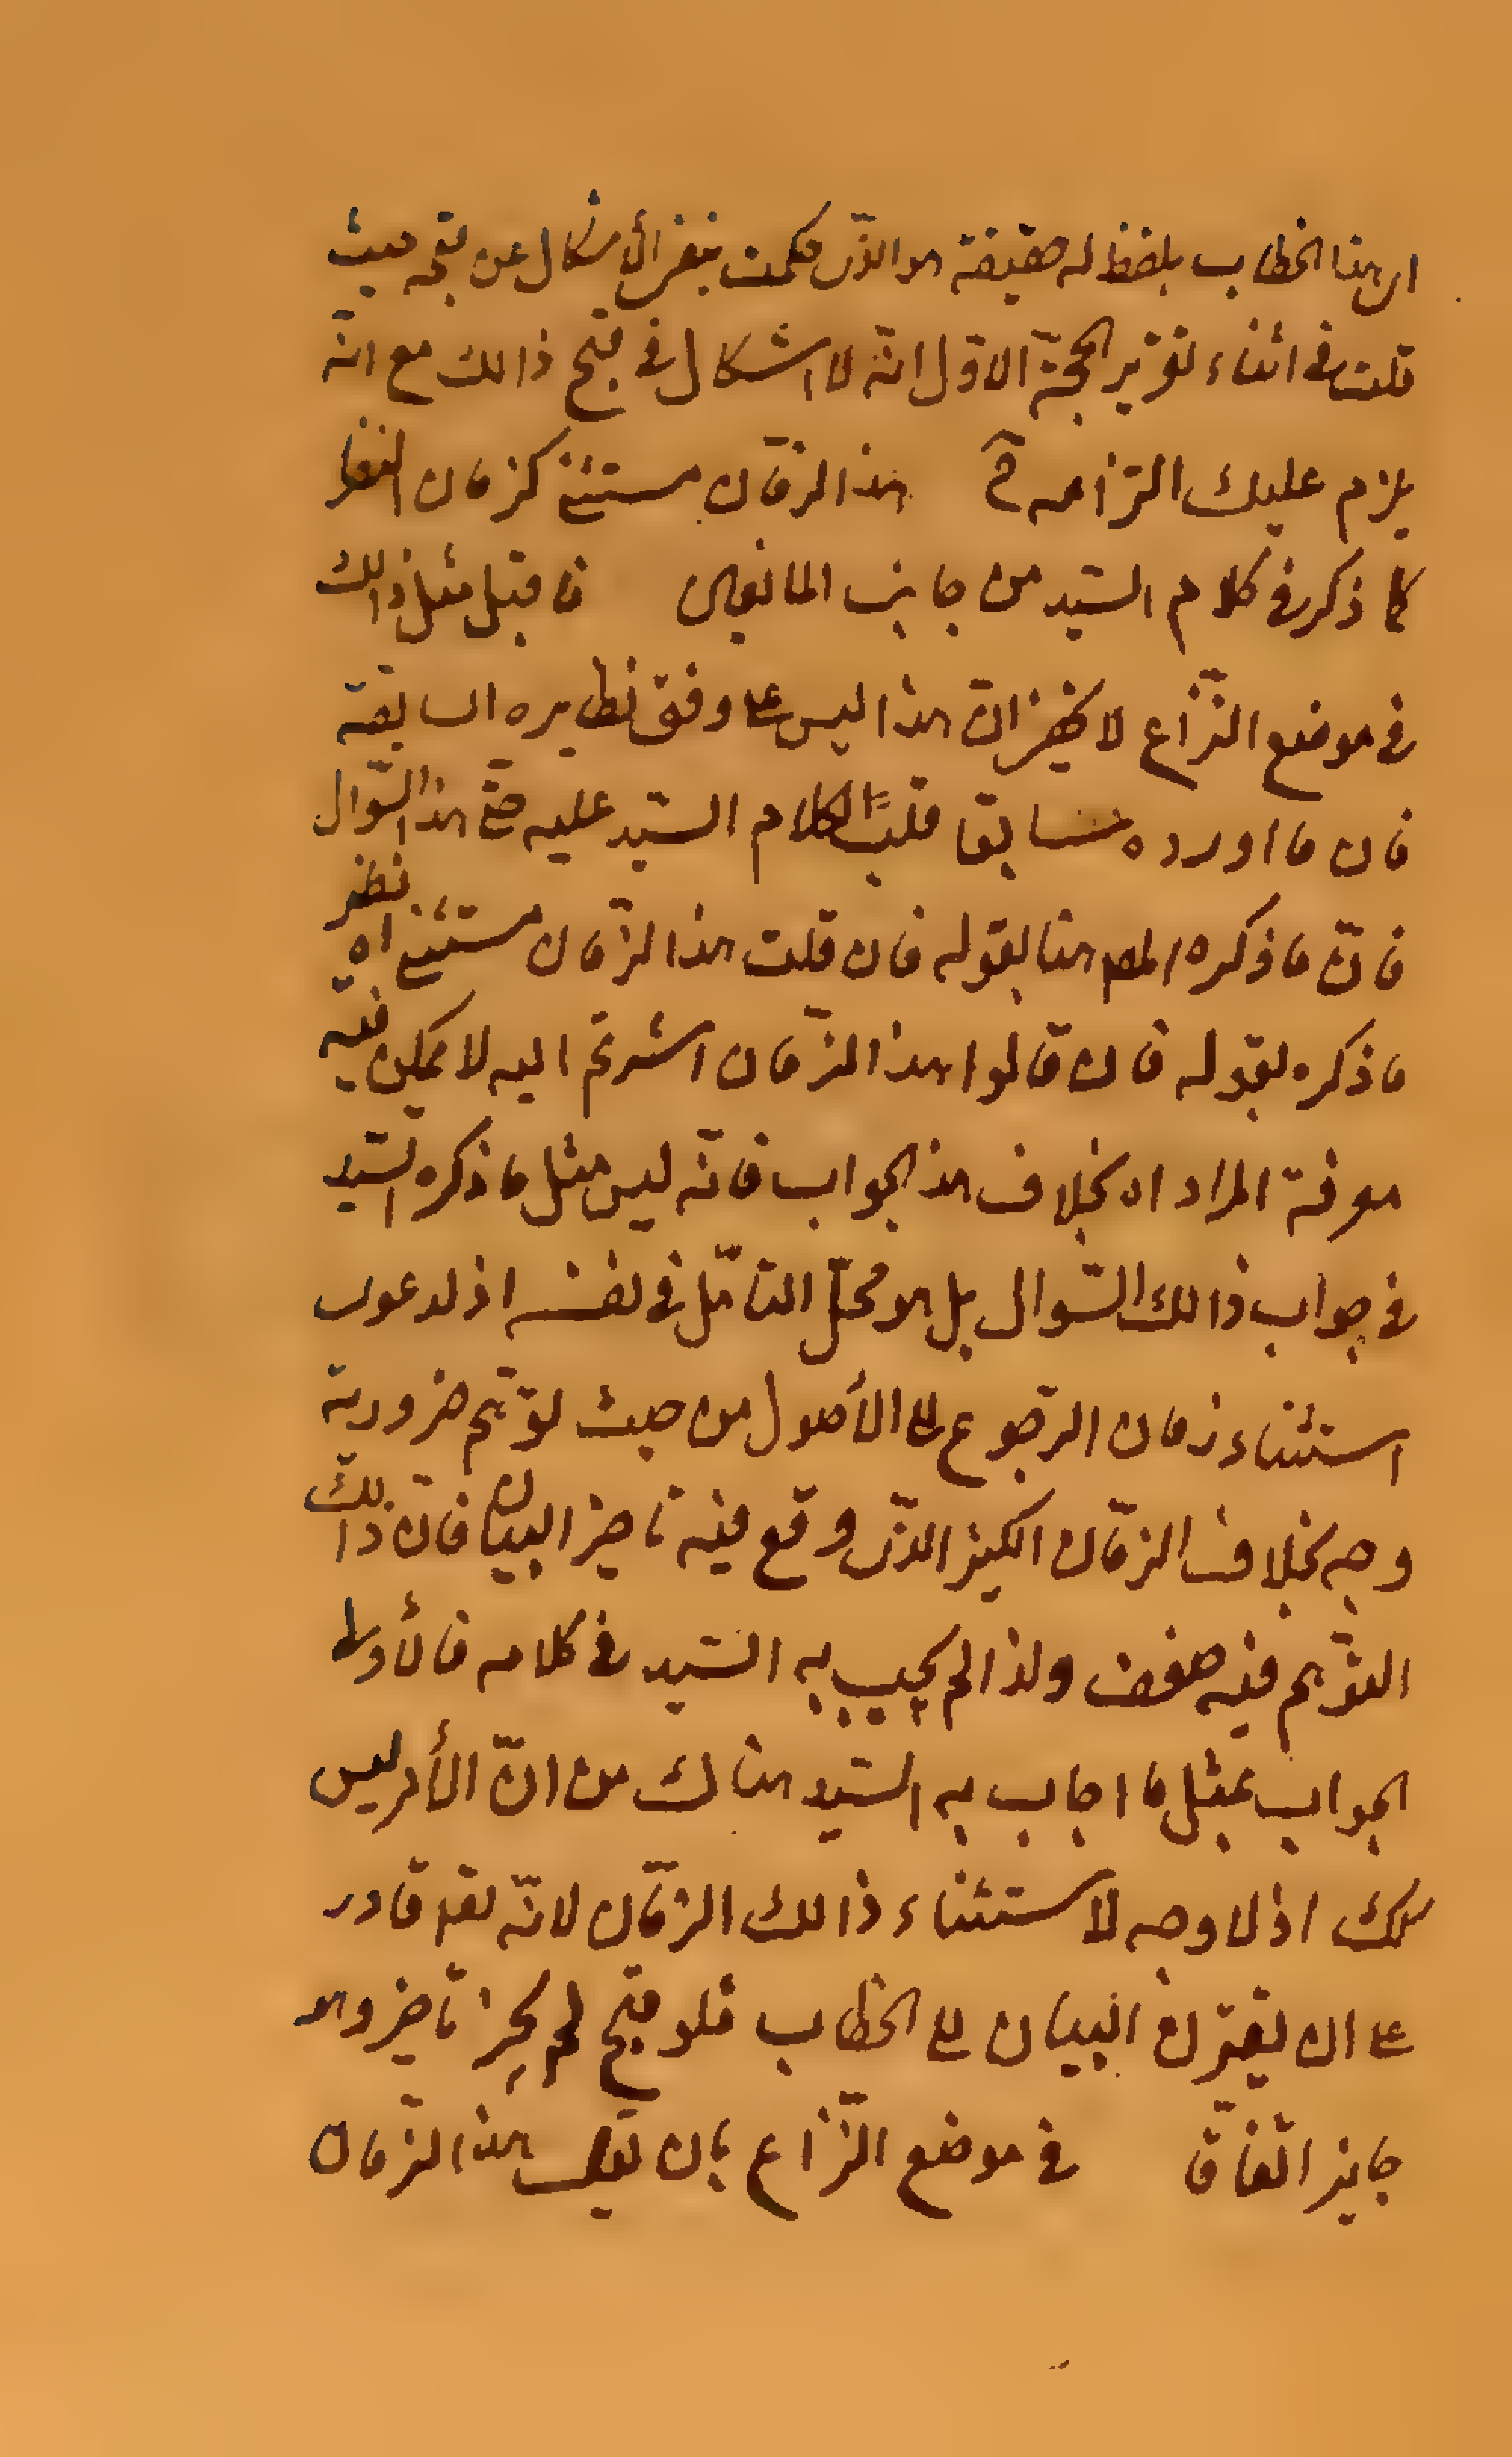 اى هنا الخطاب بلفظ له حقيقة هو الذى حكمت بنفى الأشكال عن قبحه حيث
قلت فى اثناء تقرير الحجة الاوّل انّه لا اشكال فى قبح ذالك مع انّه
يلزم عليك التزامه هذا الزمان مستثنى كزمان الخطاب
كما ذكر فى كلام السّيد من جانب المانعين فاقبل مثل ذالك
فى موضع النّزاع لا يخفى انّ هذا ليس على وفق نظايره السابقة
فان ما اورده سابقا قلبًا لكلام السّيد عليه حتّى هذا السّوال
فانّ ما ذكره المص هنا بقوله فان قلت هذا الزّمان مستثنى اه نظير
ما ذكره بقوله فان قالوا هذا الزّمان اشرتم اليه لا يمكن فيه
معرفة المراد اه بخلاف هذ الجواب فانّه ليس مثل ما ذكره السّيد
فى جواب ذالك السّوال بل هو محلّ التامّل فى نفسه اذ لدعوى
استثناء زمان الرّجوع الى الأصول من حيث توهّم ضرورية
وجه بخلاف الزّمان الكثير الذى وقع فيه تاخير البيان فان ذالك
التوهّم فيه ضعف ولذا لم يجب به السّيد فى كلامه فالأولى
الجواب بمثل ما اجاب به السّيد هناك من انّ الأمر ليس
كك اذ لا وجه لاستثناء ذالك الزّمان لانّه تعه قادر
على ان يقترن البيان الى الخطاب فلو قبح لم يجز تاخير وهو
جايز اتّفاق فى موضع النّزاع بان تقول هذا الزّمان